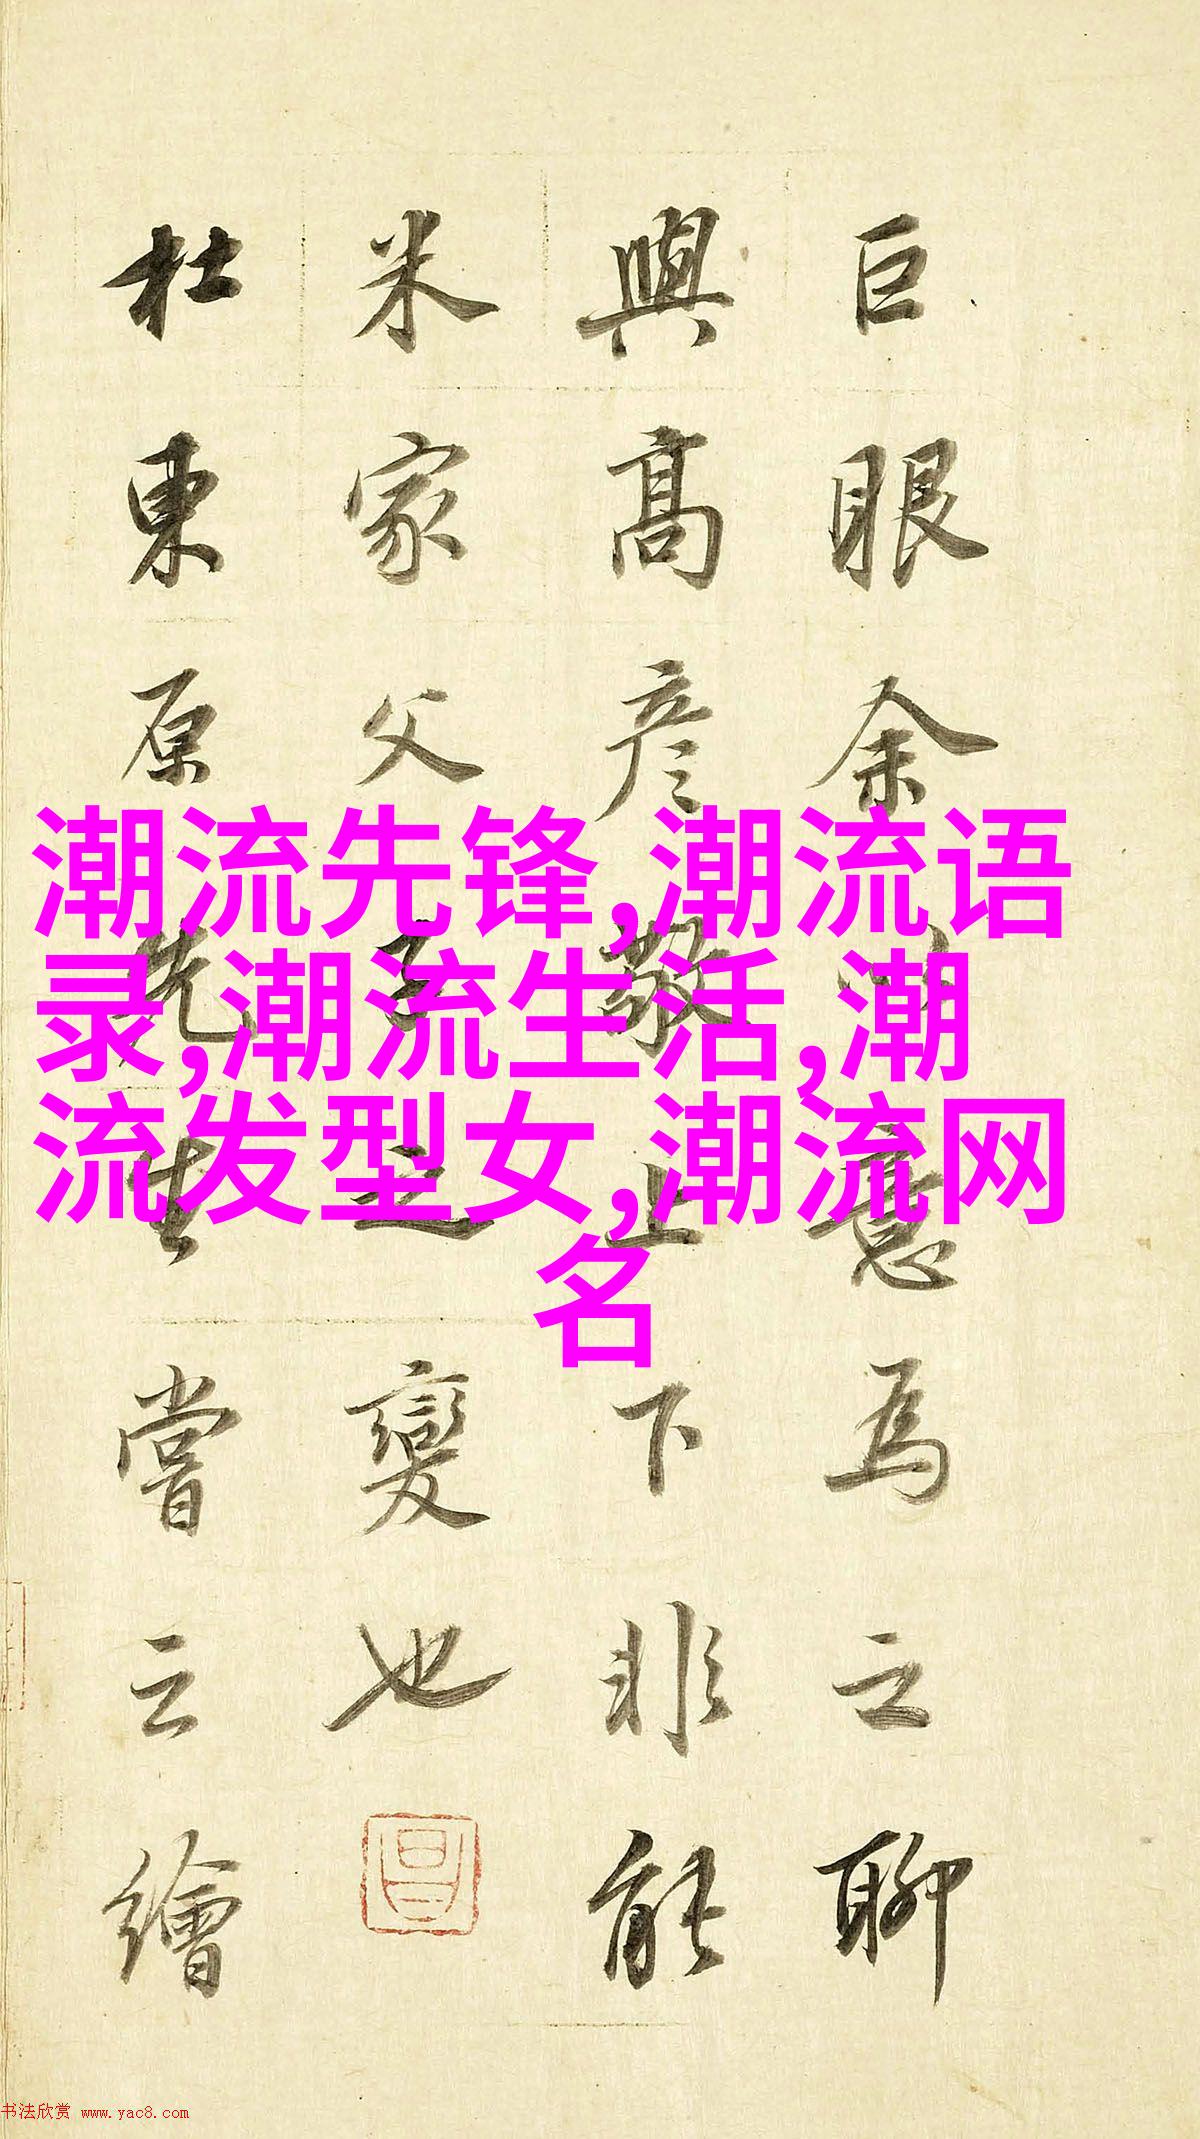 巨眼余以意為之聊
與高彥敬上下非能
米家父子之變也
杜東原先生嘗云繪
潮流先锋,潮流语
录,潮流生活,潮
流发型女,潮流网
名
书法欣赏 www.yac8.com